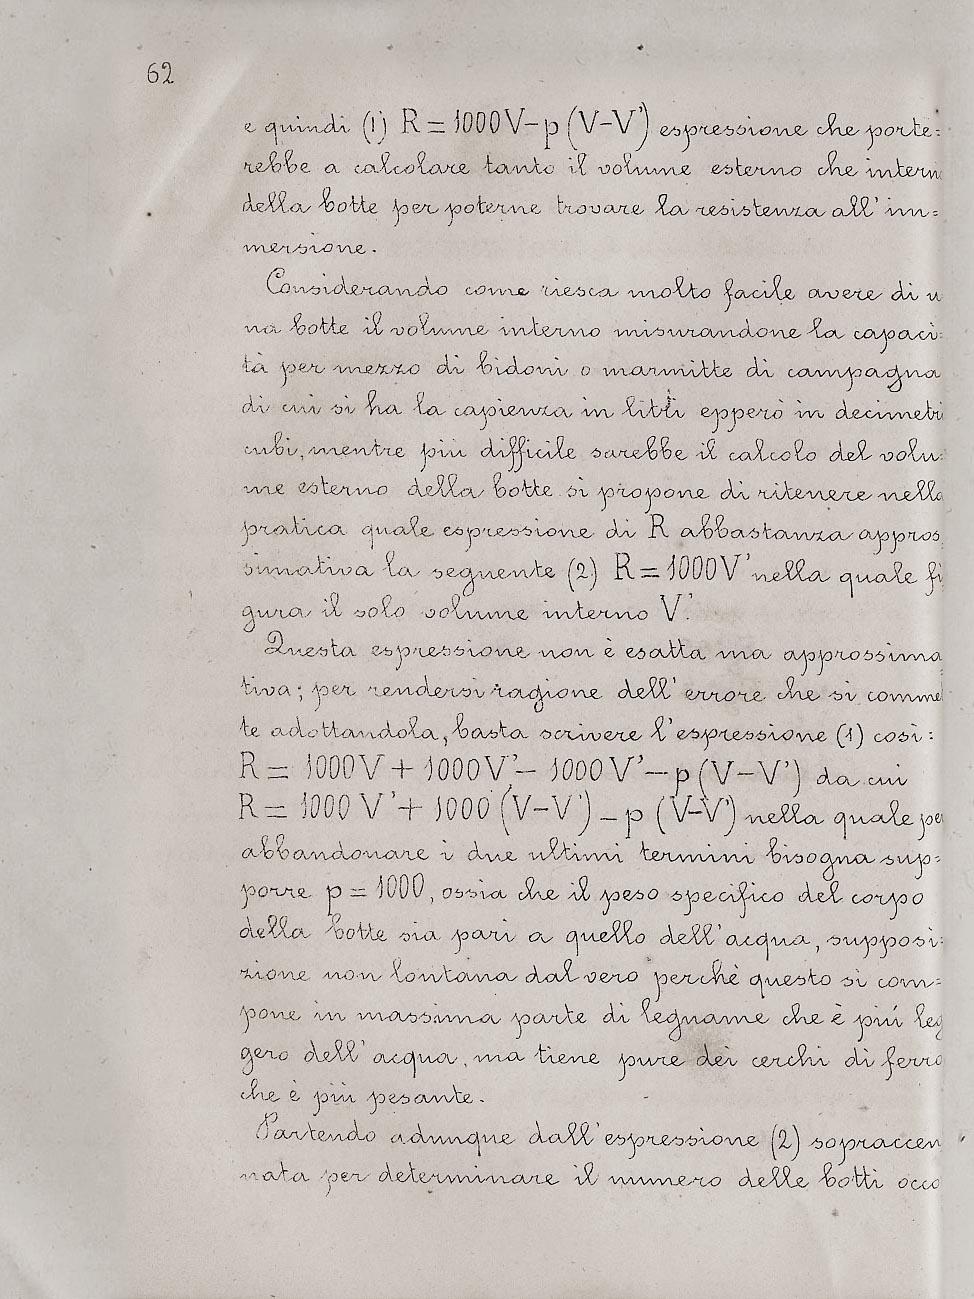 62
e quindi (1) R = 1000V-p (V-V') espressione che porte=
rebbe a calcolare tanto il volume esterno che intern
della botte per poterne trovare la resistenza all'im=
mersione.
Considerando come riesca molto facile avere di u
na botte il volume interno misurandone la capaci=
tà per mezzo di bidoni o marmitte di campagna
di cui si ha la capienza in litri epperò in decimetri
cubi, mentre più difficile sarebbe il calcolo del volu=
me esterno della botte si propone di ritenere nella
pratica quale espressione di R abbastanza appros
simativa la seguente (2) R = 1000V' nella quale fi
gura il solo volume interno V'.
Questa espressione non è esatta ma approssima
tiva; per rendersi ragione dell'errore che si commet
te adottandola, basta scrivere l'espressione (1) così:
R = 1000V + 1000V' - 1000V' - p (V-V') da cui
R = 1000 V' + 1000 (V-V') - p (V-V') nella quale per
abbandonare i due ultimi termini bisogna sup=
porre p = 1000, ossia che il peso specifico del corpo
della botte sia pari a quello dell'acqua, supposi=
zione non lontana dal vero perchè questo si com=
pone in massima parte di legname che è più leg
gero dell'acqua, ma tiene pure dei cerchi di ferro
che è più pesante.
Partendo adunque dall'espressione (2) sopraccen
nata per determinare il numero delle botti occo